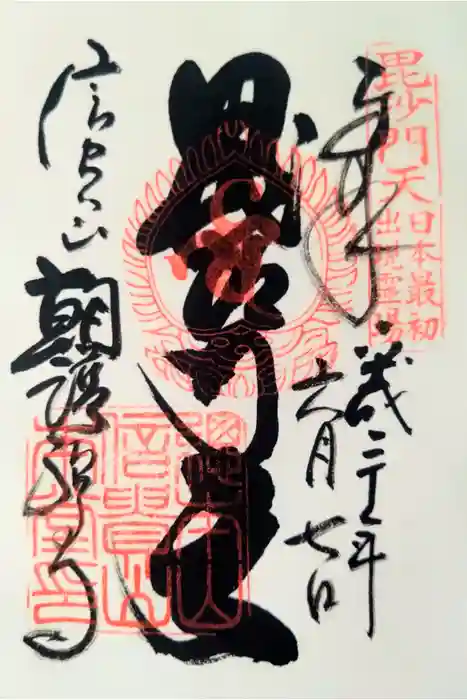 毘沙門天
日本最初
出現霊場
奉拝
六月七日
毘沙門天
信貴山
朝護孫子寺
總本山
信貴山
本堂印